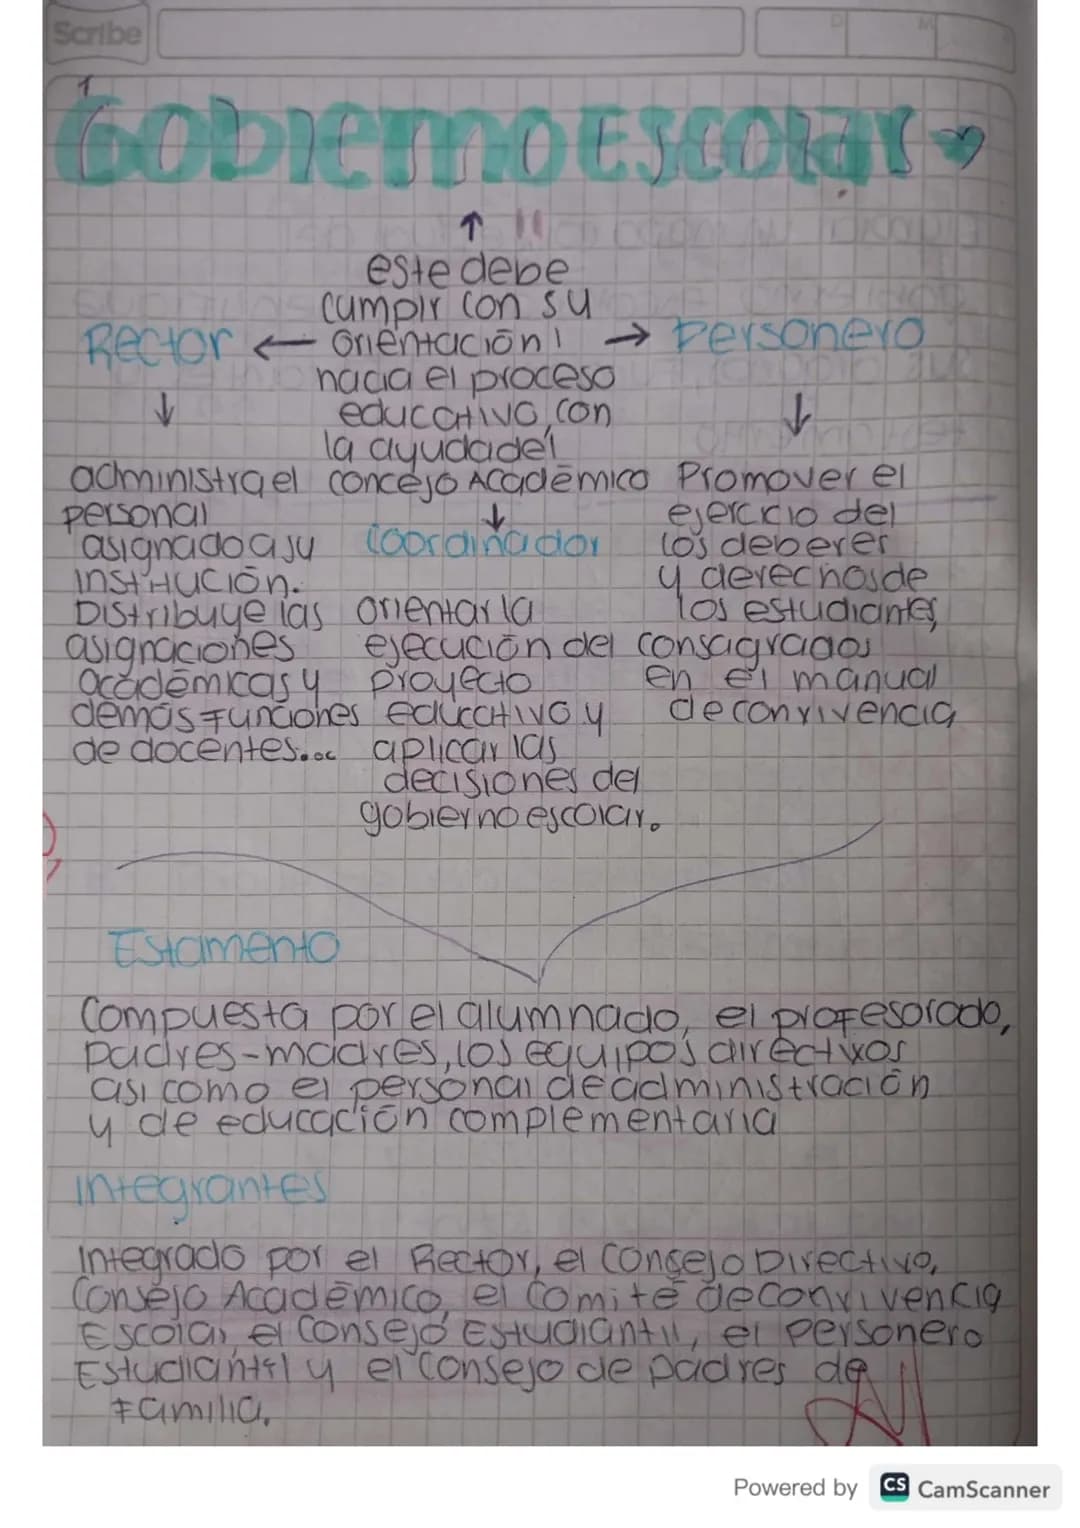 Scribe
D M
Gobierno Escolar
este debe
cumplir con su
Rector ← orientación → Personero
hacia el proceso
educativo, con
la ayuda del
concejo Académico
administra el
personal
asignado a su
institución.
Distribuye las
asignaciones
académicas y
demás funciones
de docentes...
Coordinador
orientar la
ejecución del
proyecto
educativo y
aplicar las
decisiones del
gobierno escolar.
Promover el
ejercicio del
los deberes
y derechos de
los estudiantes,
consagrados
en el manual
de convivencia
Estamento
Compuesta por el alumnado, el profesorado,
padres-madres, los equipos directivos
asi como el personal de administración
y de educación complementaria
integrantes
Integrado por el Rector, el Consejo Directivo,
Consejo Académico, el Comité de Convivencia
Escolar, el Consejo Estudiantil, el Personero
Estudiantil y el Consejo de padres de
Familia.
Powered by CS CamScanner